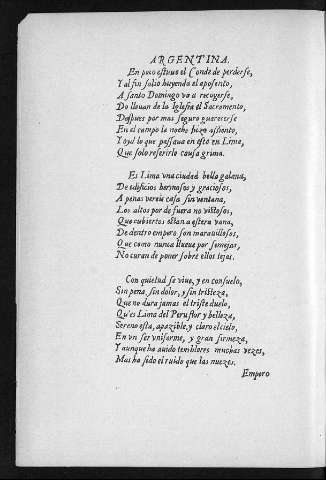 ARGENTINA.
En poco estuuo el Conde de perderse,
Y al fin solio huyendo el aposento,
A santo Domingo va a recogerse,
Do lleuan de la Iglesia el Sacramento,
Despues por mas seguro guarecerse
En el campo la noche hizo assiento,
Y oyd lo que passaua en esto en Lima,
Que solo referirlo causa grima.
Es Lima vna ciudad bella galana,
De edificios hermosos y graciosos,
A penas vereis casa sin ventana,
Los altos por de fuera no vistosos,
Que cubiertos estan a estera vana,
De dentro empero son marauillosos,
Que como nunca llueue por semejas,
No curan de poner sobre ellos tejas.
Con quietud se viue, y en consuelo,
Sin pena, sin dolor, y sin tristeza,
Que no dura jamas el triste duelo,
Qu'es Lima del Peru flor y belleza,
Sereno esta, apazible, y claro el cielo,
En vn ser vniforme, y gran firmeza,
Y aunque ha auido temblores muchas vezes,
Mas ha sido el ruido que las nuezes.
Empero